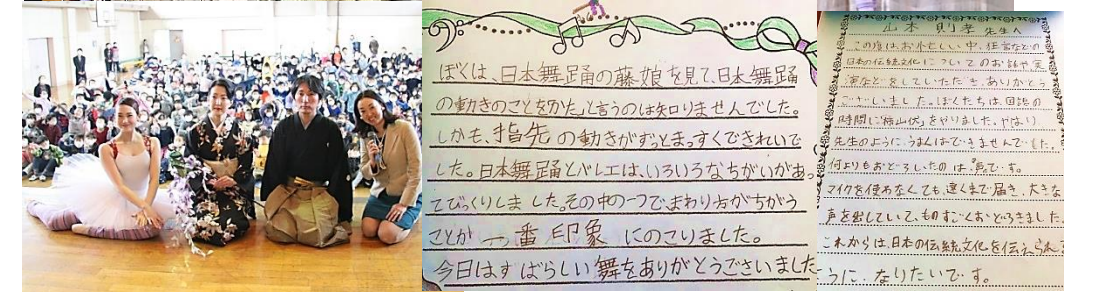 ぼくは、日本舞踊の藤娘を見て、日本舞踊
の動きのことを「かた」と言うのは知りませんでした。
しかも、指先の動きがずっとまっすぐできれいで
した。日本舞踊とバレエは、いろいろなちがいがあっ
てびっくりしました。その中の一つでまわり方がちがう
ことが一番印象にのこりました。
今日はすばらしい舞をありがとうございました
山本則孝先生へ
この度は、お忙しい中、狂言などの
日本の伝統文化についてのお話や実
演などをしていただき、ありがとう
ございました。ぼくたちは、国語の
時間に「柿山伏」をやりました。やはり、
先生のようにうまくはできませんでした。
何よりもおどろいたのは「声」です。
マイクを使わなくても、遠くまで届き、大きな
声を出していて、ものすごくおどろきました。
これからは、日本の伝統文化を伝えられる
うに、なりたいです。